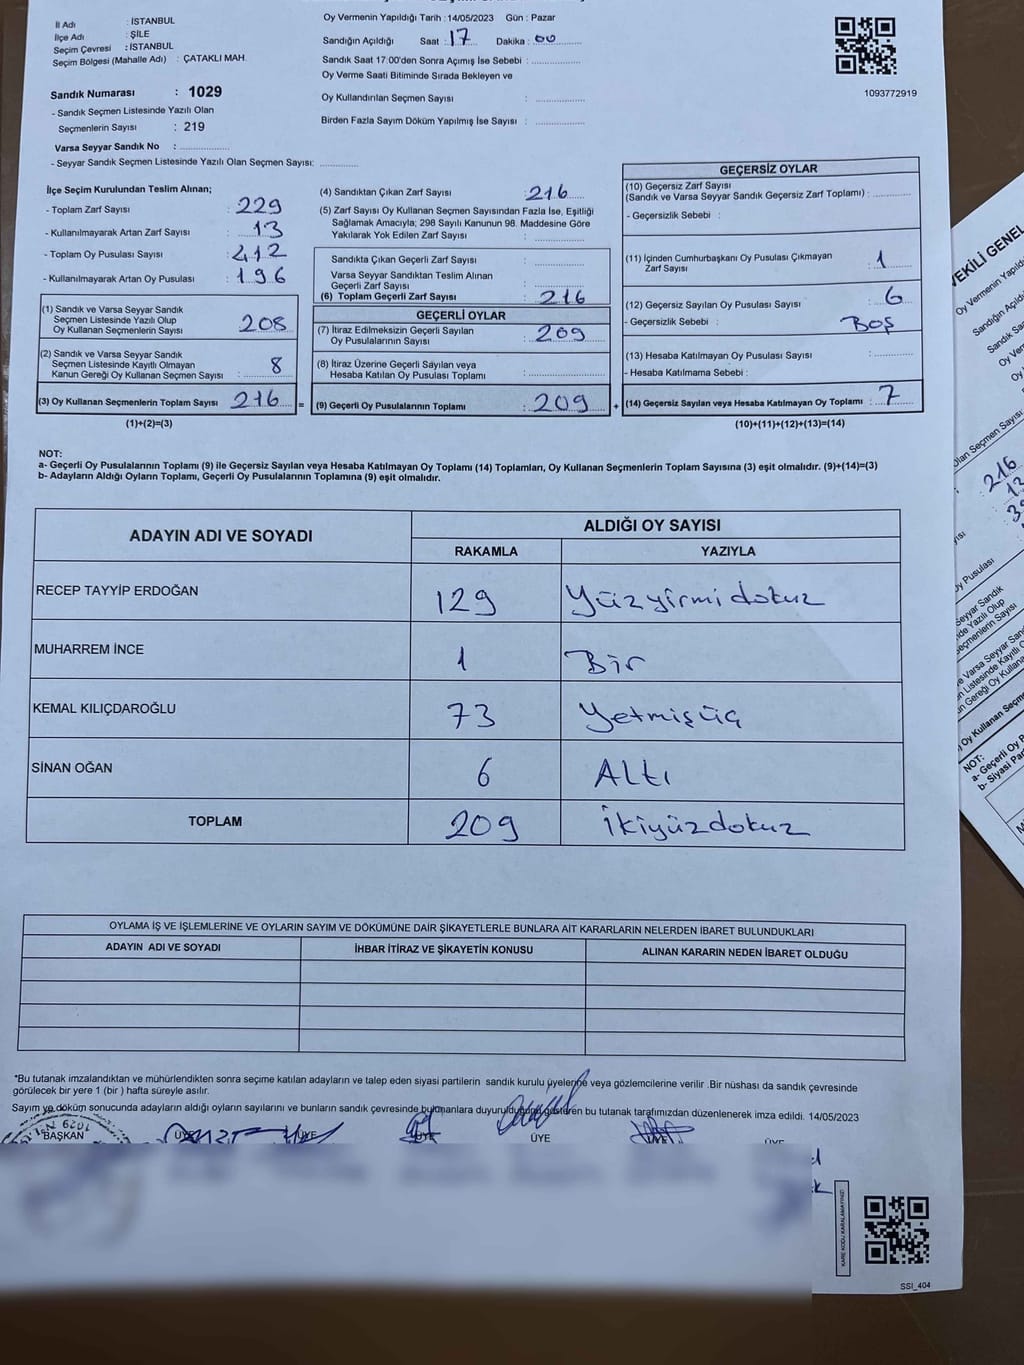 İl Adı : İSTANBUL
İlçe Adı : ŞİLE
Seçim Çevresi : İSTANBUL
Seçim Bölgesi (Mahalle Adı) : ÇATAKLI MAH.
Sandık Numarası : 1029
- Sandık Seçmen Listesinde Yazılı Olan
Seçmenlerin Sayısı : 219
Varsa Seyyar Sandık No :
- Seyyar Sandık Seçmen Listesinde Yazılı Olan Seçmen Sayısı:
Oy Vermenin Yapıldığı Tarih : 14/05/2023 Gün : Pazar
Sandığın Açıldığı Saat : 17 Dakika : 00
Sandık Saat 17:00'den Sonra Açımış İse Sebebi :
Oy Verme Saati Bitiminde Sırada Bekleyen ve
Oy Kullandırılan Seçmen Sayısı :
Birden Fazla Sayım Döküm Yapılmış İse Sayısı :
1093772919
İlçe Seçim Kurulundan Teslim Alınan;
- Toplam Zarf Sayısı : 229
- Kullanılmayarak Artan Zarf Sayısı : 13
- Toplam Oy Pusulası Sayısı : 412
- Kullanılmayarak Artan Oy Pusulası : 196
(1) Sandık ve Varsa Seyyar Sandık
Seçmen Listesinde Yazılı Olup
Oy Kullanan Seçmenlerin Sayısı : 208
(2) Sandık ve Varsa Seyyar Sandık
Seçmen Listesinde Kayıtlı Olmayan
Kanun Gereği Oy Kullanan Seçmen Sayısı : 8
(3) Oy Kullanan Seçmenlerin Toplam Sayısı : 216 =
(1)+(2)=(3)
(4) Sandıktan Çıkan Zarf Sayısı : 216
(5) Zarf Sayısı Oy Kullanan Seçmen Sayısından Fazla İse, Eşitliği
Sağlamak Amacıyla; 298 Sayılı Kanunun 98. Maddesine Göre
Yakılarak Yok Edilen Zarf Sayısı :
Sandıkta Çıkan Geçerli Zarf Sayısı :
Varsa Seyyar Sandıktan Teslim Alınan
Geçerli Zarf Sayısı :
(6) Toplam Geçerli Zarf Sayısı : 216
GEÇERLİ OYLAR
(7) İtiraz Edilmeksizin Geçerli Sayılan
Oy Pusulalarının Sayısı : 209
(8) İtiraz Üzerine Geçerli Sayılan veya
Hesaba Katılan Oy Pusulası Toplamı :
(9) Geçerli Oy Pusulalarının Toplamı : 209 +
GEÇERSİZ OYLAR
(10) Geçersiz Zarf Sayısı
(Sandık ve Varsa Seyyar Sandık Geçersiz Zarf Toplamı) :
- Geçersizlik Sebebi :
(11) İçinden Cumhurbaşkanı Oy Pusulası Çıkmayan
Zarf Sayısı : 1
(12) Geçersiz Sayılan Oy Pusulası Sayısı : 6
- Geçersizlik Sebebi : Boş
(13) Hesaba Katılmayan Oy Pusulası Sayısı :
- Hesaba Katılmama Sebebi :
(14) Geçersiz Sayılan veya Hesaba Katılmayan Oy Toplamı : 7
(10)+(11)+(12)+(13)=(14)
NOT:
a- Geçerli Oy Pusulalarının Toplamı (9) ile Geçersiz Sayılan veya Hesaba Katılmayan Oy Toplamı (14) Toplamları, Oy Kullanan Seçmenlerin Toplam Sayısına (3) eşit olmalıdır. (9)+(14)=(3)
b- Adayların Aldığı Oyların Toplamı, Geçerli Oy Pusulalarının Toplamına (9) eşit olmalıdır.
ADAYIN ADI VE SOYADI ALDIĞI OY SAYISI
RAKAMLA YAZIYLA
RECEP TAYYİP ERDOĞAN 129 Yüzyirmidokuz
MUHARREM İNCE 1 Bir
KEMAL KILIÇDAROĞLU 73 Yetmişüç
SİNAN OĞAN 6 Altı
TOPLAM 209 İkiyüzdokuz
OYLAMA İŞ VE İŞLEMLERİNE VE OYLARIN SAYIM VE DÖKÜMÜNE DAİR ŞİKAYETLERLE BUNLARA AİT KARARLARIN NELERDEN İBARET BULUNDUKLARI
ADAYIN ADI VE SOYADI İHBAR İTİRAZ VE ŞİKAYETİN KONUSU ALINAN KARARIN NEDEN İBARET OLDUĞU
*Bu tutanak imzalandıktan ve mühürlendikten sonra seçime katılan adayların ve talep eden siyasi partilerin sandık kurulu üyelerine veya gözlemcilerine verilir .Bir nüshası da sandık çevresinde
görülecek bir yere 1 (bir ) hafta süreyle asılır.
Sayım ve döküm sonucunda adayların aldığı oyların sayılarını ve bunların sandık çevresinde bulunanlara duyurulduğunu gösteren bu tutanak tarafımızdan düzenlenerek imza edildi. 14/05/2023
1029
BAŞKAN ÜYE ÜYE ÜYE ÜYE ÜYE ÜYE
KARE KODU KARALAMAYINIZ!
SSI_404
VEKİLİ GENEL
Oy Vermenin
Sandığın
216
NOT: